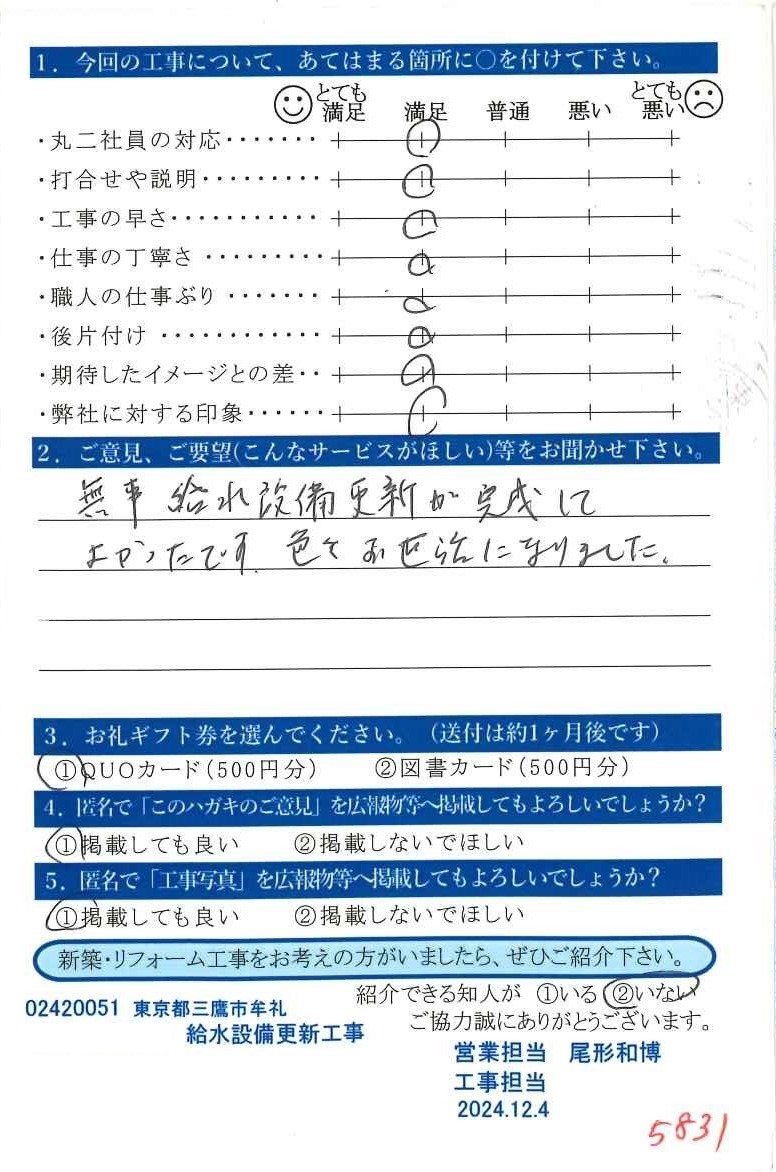 1．今回の工事について、あてはまる箇所に○を付けて下さい。
とても満足 満足 普通 悪い とても悪い
・丸二社員の対応・・・・・・・
・打合せや説明・・・・・・・・・
・工事の早さ・・・・・・・・・・・
・仕事の丁寧さ ・・・・・・・・・
・職人の仕事ぶり ・・・・・・・
・後片付け ・・・・・・・・・・・・
・期待したイメージとの差・・
・弊社に対する印象・・・・・・
2．ご意見、ご要望(こんなサービスがほしい)等をお聞かせ下さい。
無事 給水設備更新が完成して
よかったです。色々お世話になりました。
3．お礼ギフト券を選んでください。（送付は約1ヶ月後です）
①QUOカード(500円分） ②図書カード(500円分）
4．匿名で「このハガキのご意見」を広報物等へ掲載してもよろしいでしょうか？
①掲載しても良い ②掲載しないでほしい
5．匿名で「工事写真」を広報物等へ掲載してもよろしいでしょうか？
①掲載しても良い ②掲載しないでほしい
新築・リフォーム工事をお考えの方がいましたら、ぜひご紹介下さい。
紹介できる知人が ①いる ②いない
ご協力誠にありがとうございます。
02420051 東京都三鷹市牟礼
給水設備更新工事
営業担当 尾形和博
工事担当
2024.12.4
5831